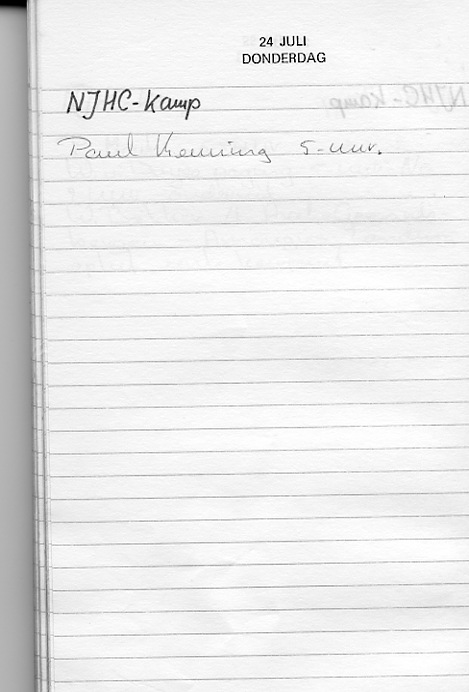 24 JULI
DONDERDAG
NJHC-Kamp
Paul 5-uur.